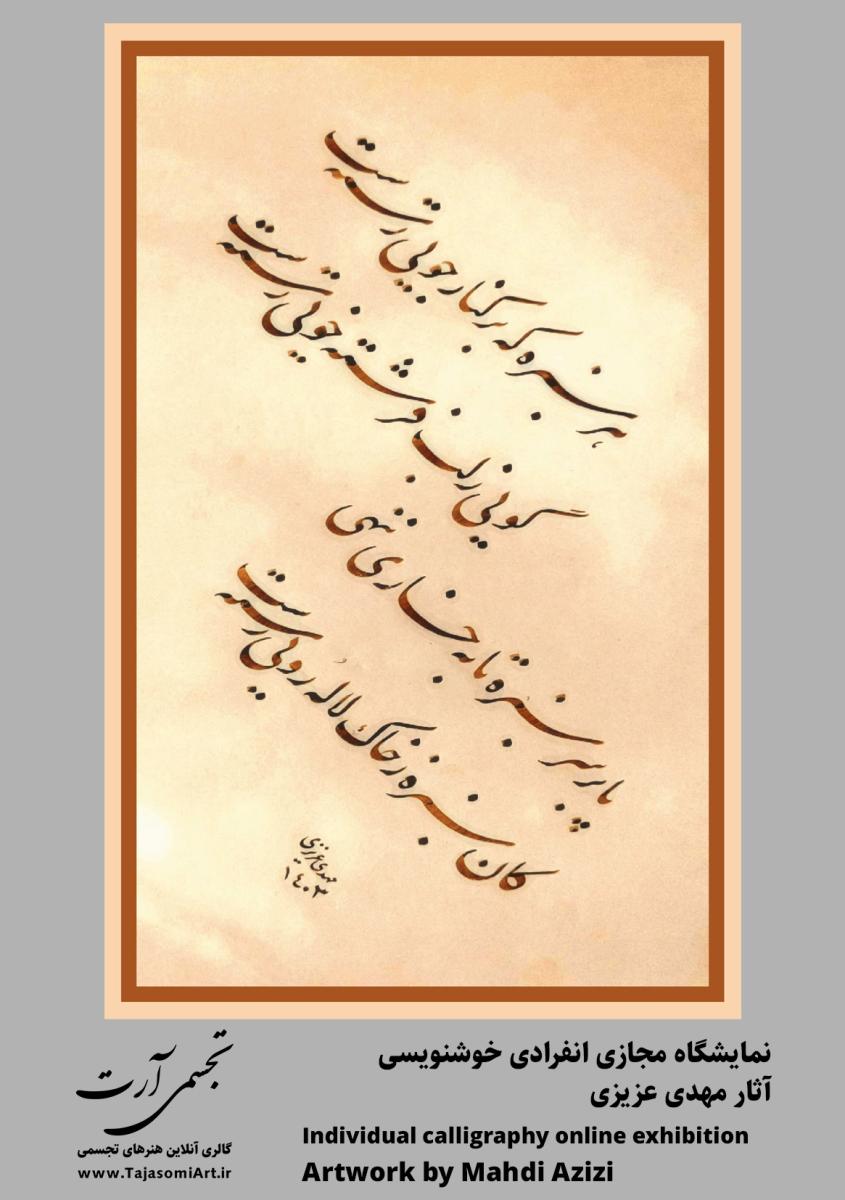 هر سبزه که بر کنار جویی رسته ست
گویی ز لب فرشته خویی رسته ست
پا بر سر سبزه تا به خاری ننهی
کان سبزه ز خاک لاله رویی رسته ست
مهدی عزیزی
۱۴۰۳
نمایشگاه مجازی انفرادی خوشنویسی
آثار مهدی عزیزی
Individual calligraphy online exhibition
Artwork by Mahdi Azizi
تجسمی آرت
گالری آنلاین هنرهای تجسمی
www.TajasomiArt.ir